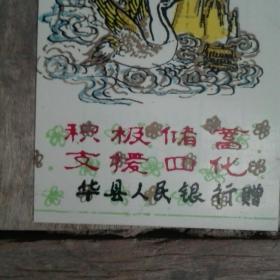 积极储蓄
支援四化
华县人民银行赠